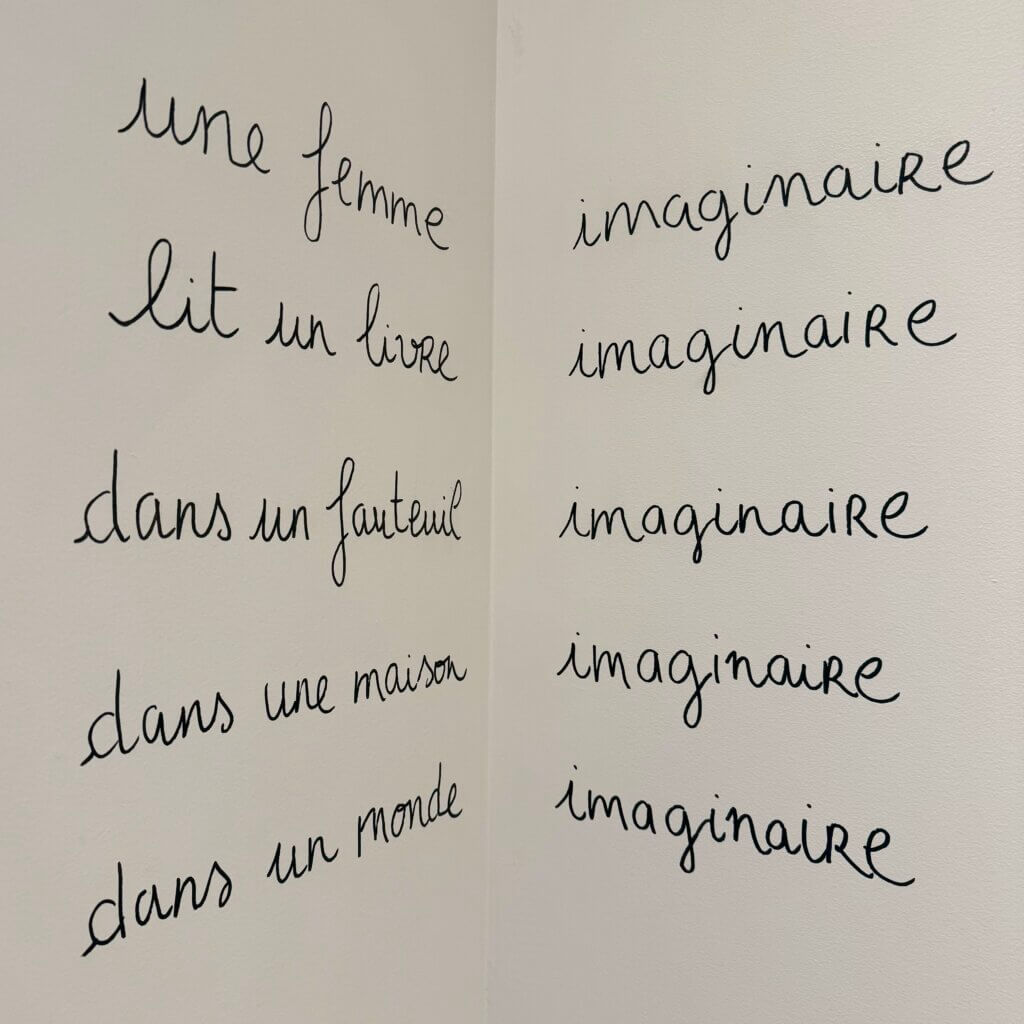 une femme imaginaire
lit un livre imaginaire
dans un fauteuil imaginaire
dans une maison imaginaire
dans un monde imaginaire